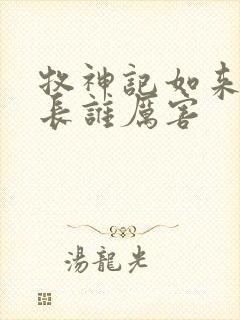 牧神記如来
長誰厲害
湯龍光